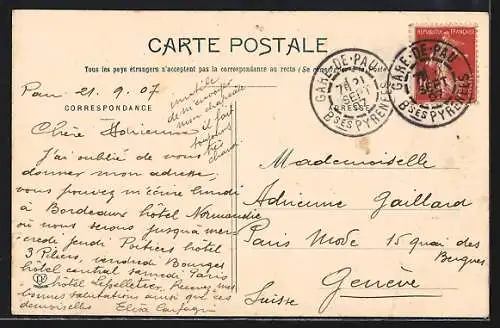 CARTE POSTALE
Tous les pays étrangers n'acceptent pas la correspondance au recto (Se
REPUBLIQUE FRANÇAISE
GARE-DE-PAU
21
SEPT
Bses PYRENEES
GARE-DE-PAU
SEPT
Bses PYRENEES
Pau 21.9.07
inutile
de m'envoyer
mon
il fait
toujours
très
chaud
CORRESPONDANCE
Chère Adrienne
J'ai oublié de vous
donner mon adresse,
vous pouvez m'écrire lundi
à Bordeaux hôtel Normandie
où nous serons jusqu'à mer-
credi jeudi Poitiers hôtel
3 Piliers, vendredi Bourges
hôtel central samedi Paris
hôtel Lepelletier. Recevez mes
bonnes salutations ainsi que ces
demoiselles Elisa
Mademoiselle
Adrienne Gaillard
Paris Mode 15 quai des
Bergues
Genève
Suisse